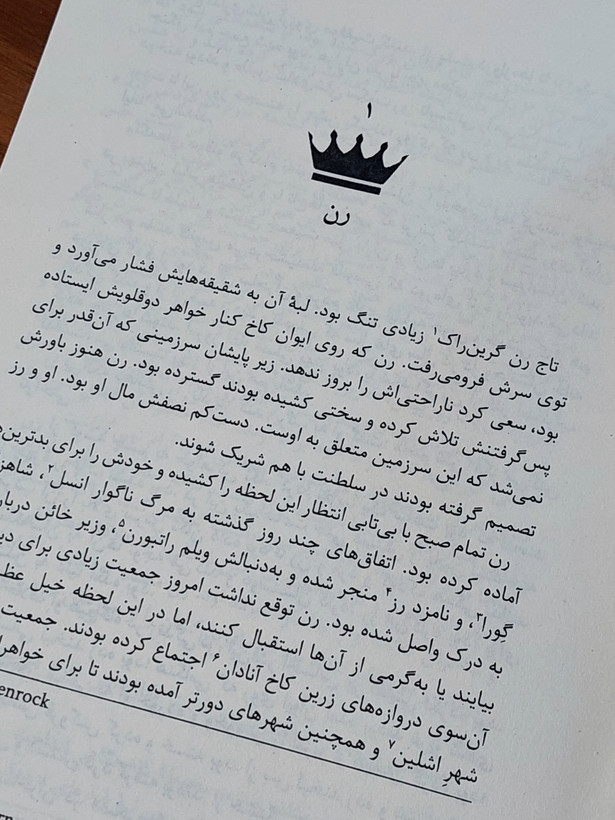 ۱
رن
تاج رن گرین‌راک۱ زیادی تنگ بود. لبهٔ آن به شقیقه‌هایش فشار می‌آورد و
توی سرش فرومی‌رفت. رن که روی ایوان کاخ کنار خواهر دوقلویش ایستاده
بود، سعی کرد ناراحتی‌اش را بروز ندهد. زیر پایشان سرزمینی که آن‌قدر برای
پس‌گرفتنش تلاش کرده و سختی کشیده بودند گسترده بود. رن هنوز باورش
نمی‌شد که این سرزمین متعلق به اوست. دست‌کم نصفش مال او بود. او و رز
تصمیم گرفته بودند در سلطنت با هم شریک شوند.
رن تمام صبح با بی‌تابی انتظار این لحظه را کشیده و خودش را برای بدترین
آماده کرده بود. اتفاق‌های چند روز گذشته به مرگ ناگوار انسل۲، شاهز
گورا۳، و نامزد رز۴ منجر شده و به‌دنبالش ویلم راتبورن۵، وزیر خائن دربار
به درک واصل شده بود. رن توقع نداشت امروز جمعیت زیادی برای دی
بیایند یا به‌گرمی از آن‌ها استقبال کنند، اما در این لحظه خیل عظ
آن‌سوی دروازه‌های زرین کاخ آنادان۶ اجتماع کرده بودند. جمعیت
شهرِ اشلین۷ و همچنین شهرهای دورتر آمده بودند تا برای خواهرا
enrock